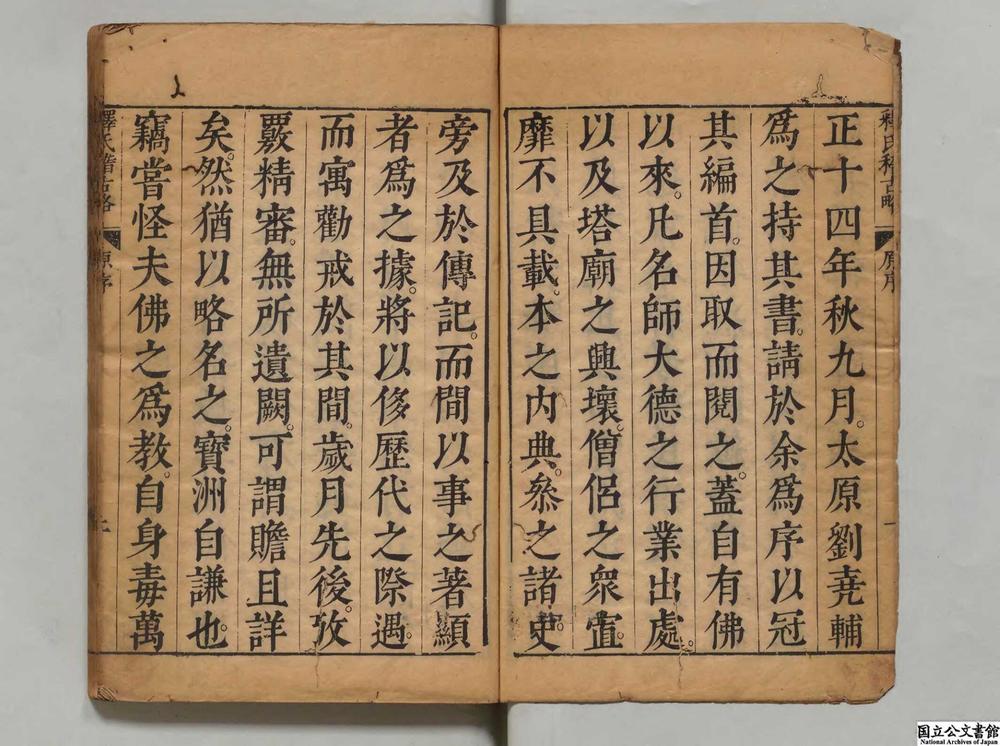 釋氏稽古略 原序 一
正十四年秋九月。太原劉堯輔
爲之持其書。請於余爲序以冠
其編首。因取而閱之。蓋自有佛
以來。凡名師大德之行業出處。
以及塔廟之興壞。僧侶之衆寡。
靡不具載。本之內典。叅之諸史。
旁及於傳記。而間以事之著顯
者爲之據。將以侈歷代之際遇。
而寓勸戒於其間。歲月先後。攷
覈精審。無所遺闕。可謂贍且詳
矣。然猶以略名之。寶洲自謙也。
竊嘗怪夫佛之爲教。自身毒萬
釋氏稽古略 原序
国立公文書館
National Archives of Japan